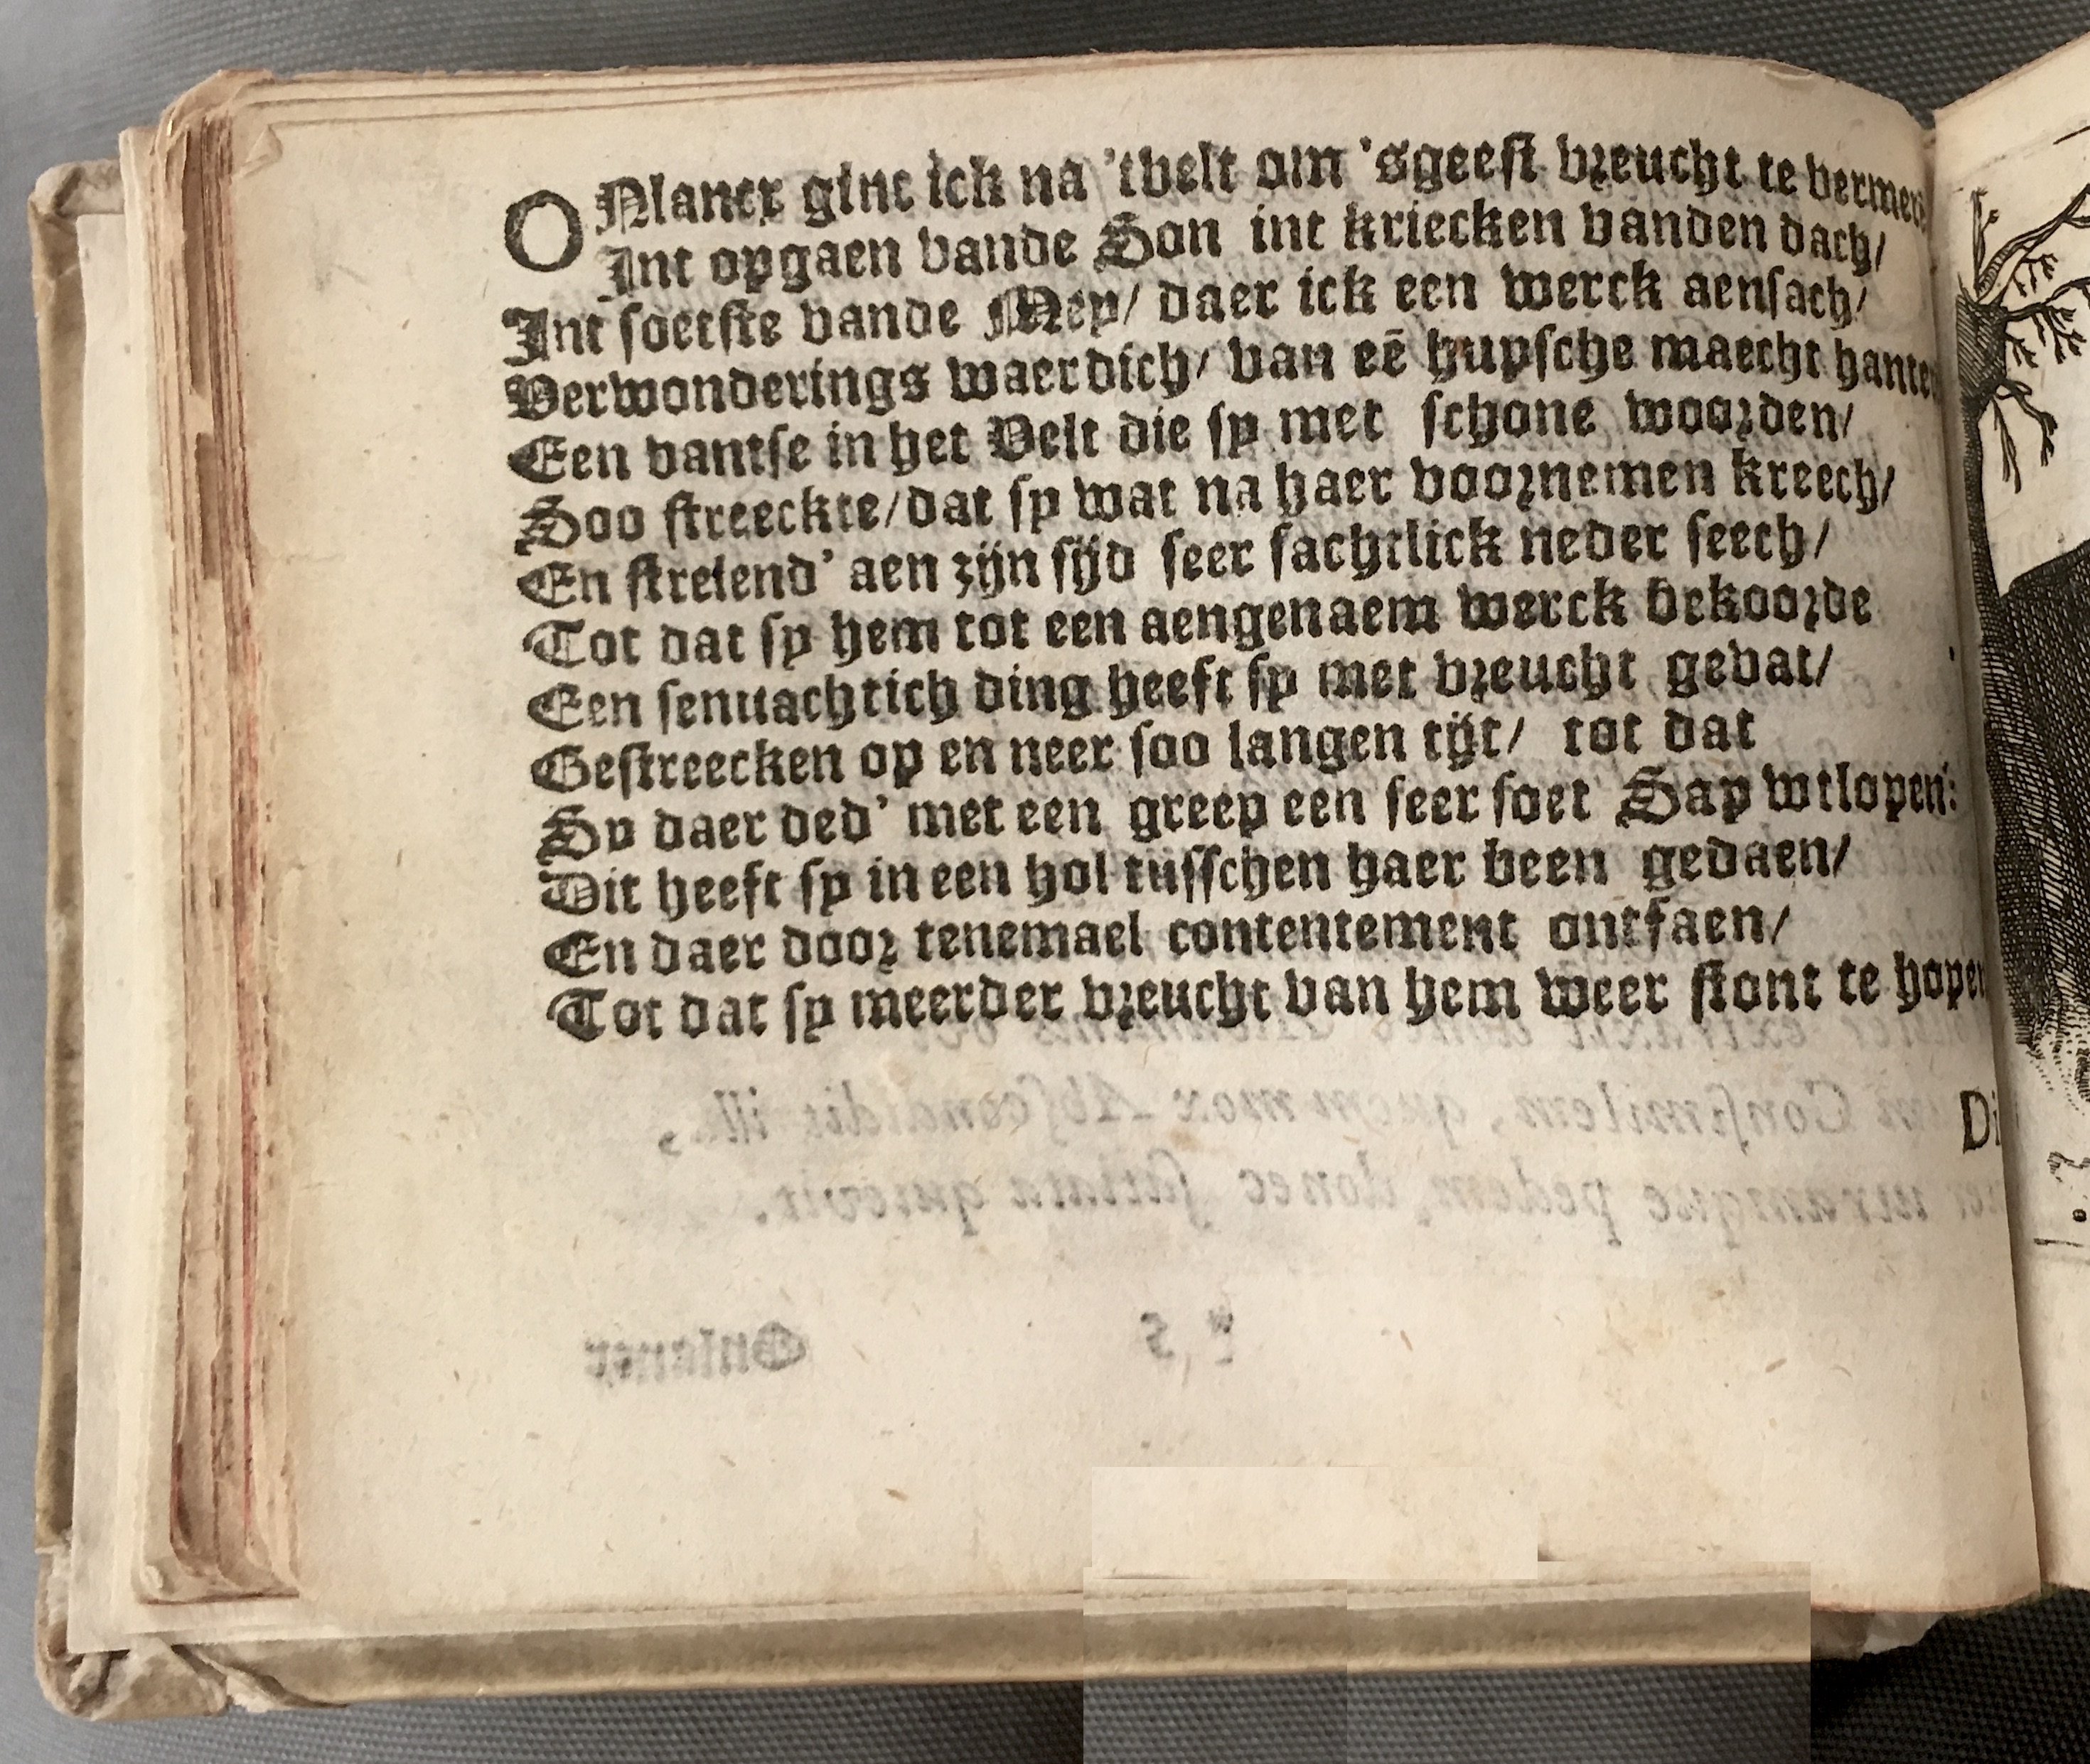 ONlancx ginc ick na 'tvelt om 'sgeest vreucht te
Int opgaen vande Son int kriecken vanden dach/
Int soetste vande Mey/ daer ick een werck aensach/
Verwonderings waerdich/ van eē hupsche maecht
Een vantse in het Velt die sy met schone woorden/
Soo streeckte/dat sy wat na haer voornemen kreech/
En strelend' aen zijn sijd seer sachtlick neder seech/
Tot dat sy hem tot een aengenaem werck bekoorde
Een senuachtich ding heeft sy met vreucht gevat/
Gestreecken op en neer soo langen tijt/ tot dat
Sy daer ded' met een greep een seer soet Sap wtlopen:
Dit heeft sy in een hol tusschen haer been gedaen/
En daer door tenemael contentement ontfaen/
Tot dat sy meerder vreucht van hem weer stont te